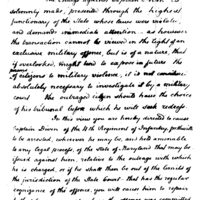 solemnly made, presented through the highest
functionary of the State whose laws were violate,
and demands immediate attention. as however
the transaction cannot be viewed in the light of an
exclusive military offence, but is of a nature, that
if overlooked, might tend to expose in future the
citizens to military violence, it is not
absolutely necessary to investigate it by a military
court the outraged citizen should have the choice
of his tribunal before which he will seek redress.
In this view you are hereby directed to cause
Captain of the Regiment of Infantry, forthwith
to be arrested, wherever he may be, and held amenable
to any legal process, of the State of Maryland that may be
found against him, relative to the outrage with which
he is charged, or if he shall be out of the limits of
the jurisdiction of the State Court that has the regular
cognizance of the offence, you will cause him to repair